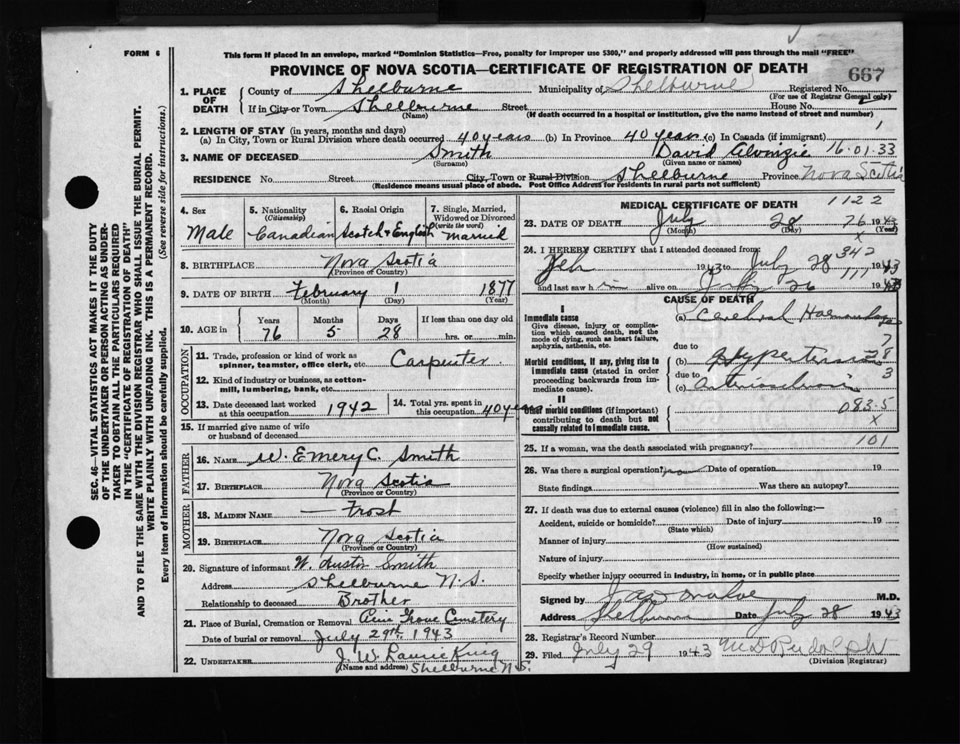 FORM 6
This form if placed in an envelope, marked "Dominion Statistics—Free, penalty for improper use $300," and properly addressed will pass through the mail "FREE"
PROVINCE OF NOVA SCOTIA—CERTIFICATE OF REGISTRATION OF DEATH
667
SEC. 46—VITAL STATISTICS ACT MAKES IT THE DUTY
OF THE UNDERTAKER OR PERSON ACTING AS UNDER-
TAKER TO OBTAIN ALL THE PARTICULARS REQUIRED
IN THE "CERTIFICATE OF REGISTRATION OF DEATH"
AND TO FILE THE SAME WITH THE DIVISION REGISTRAR WHO SHALL ISSUE THE BURIAL PERMIT.
WRITE PLAINLY WITH UNFADING INK. THIS IS A PERMANENT RECORD.
Every item of Information should be carefully supplied. (See reverse side for instructions.)
1. PLACE OF DEATH
County of Shelburne Municipality of Shelburne Registered No.
(For use of Registrar General only)
If in City or Town Shelbourne Street House No.
(Name) (If death occurred in a hospital or institution, give the name instead of street and number)
2. LENGTH OF STAY (in years, months and days)
(a) In City, Town or Rural Division where death occurred 40 years (b) In Province 40 years (c) In Canada (if immigrant) 1
3. NAME OF DECEASED Smith David Alvinzie 16-01-33
(Surname) (Given name or names)
RESIDENCE No. Street City, Town or Rural Division Shelburne Province Nova Scotia
(Residence means usual place of abode. Post Office Address for residents in rural parts not sufficient)
4. Sex
Male
5. Nationality
(Citizenship)
Canadian
6. Racial Origin
Scotch & English
7. Single, Married, Widowed or Divorced
(write the word)
Married
8. BIRTHPLACE Nova Scotia
(Province or Country)
9. DATE OF BIRTH February 1 1877
(Month) (Day) (Year)
10. AGE in
Years Months Days If less than one day old
76 5 28 hrs. or min.
OCCUPATION
11. Trade, profession or kind of work as
spinner, teamster, office clerk, etc. Carpenter
12. Kind of industry or business, as cotton-
mill, lumbering, bank, etc.
13. Date deceased last worked
at this occupation 1942
14. Total yrs. spent
in this occupation 40 years
15. If married give name of wife
or husband of deceased
FATHER
16. NAME W. Emery C. Smith
17. BIRTHPLACE Nova Scotia
(Province or Country)
MOTHER
18. MAIDEN NAME — Frost
19. BIRTHPLACE Nova Scotia
(Province or Country)
20. Signature of informant W. Austin Smith
Address Shelburne N.S.
Relationship to deceased Brother
21. Place of Burial, Cremation or Removal Pine Grove Cemetery
Date of burial or removal July 29th, 1943
22. UNDERTAKER J. W.
(Name and address) Shelburne N.S.
MEDICAL CERTIFICATE OF DEATH
1122
23. DATE OF DEATH July 28 76 1943
(Month) (Day) (Year)
x
24. I HEREBY CERTIFY that I attended deceased from: 342
Feb 1943 to July 28 1943
111
and last saw h im alive on July 26 1943
CAUSE OF DEATH
I
Immediate cause
Give disease, injury or complica-
tion which caused death, not the
mode of dying, such as heart failure,
asphyxia, asthenia, etc.
(a) Cerebral Haemorrhage
due to 7
Morbid conditions, if any, giving rise to
immediate cause (stated in order
proceeding backwards from im-
mediate cause).
(b) Hypertension 28
due to 3
(c)
II
Other morbid conditions (if important)
contributing to death but not
causally related to immediate cause.
083.5
x
101
25. If a woman, was the death associated with pregnancy?
26. Was there a surgical operation? no Date of operation 19
State findings Was there an autopsy?
27. If death was due to external causes (violence) fill in also the following:—
Accident, suicide or homicide? Date of injury 19
(State which)
Manner of injury
(How sustained)
Nature of injury
Specify whether injury occurred in industry, in home, or in public place
Signed by M.D.
Address Shelburne Date July 28 1943
28. Registrar's Record Number
29. Filed July 29 1943 M D Rudolph
(Division Registrar)